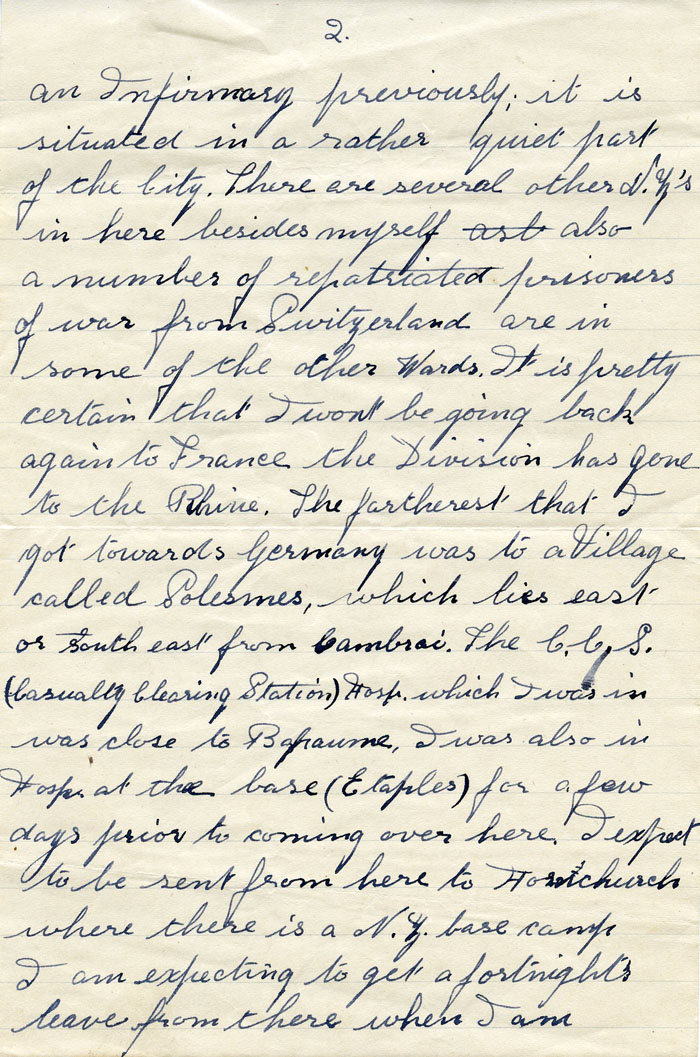 2.
an Infirmary previously; it is
situated in a rather quiet part
of the City. There are several other N.Z's
in here besides myself ast also
a number of repatriated prisoners
of war from Switzerland are in
some of the other Wards. It is pretty
certain that I wont be going back
again to France the Division has gone
to the Rhine. The fartherest that I
got towards Germany was to a Village
called Solesmes, which lies east
or south east from Cambrai. The C.C.S.
(Casualty Clearing Station) Hosp. which I was in
was close to Bapaume, I was also in
Hosp. at the base (Etaples) for a few
days prior to coming over here. I expect
to be sent from here to Hornchurch
where there is a N.Z. base camp
I am expecting to get a fortnight's
leave from there when I am